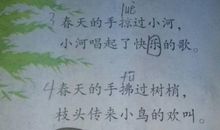 lüè
3春天的手掠过小河，
小河唱起了快乐的歌。
fú
4春天的手拂过树梢，
枝头传来小鸟的欢叫。